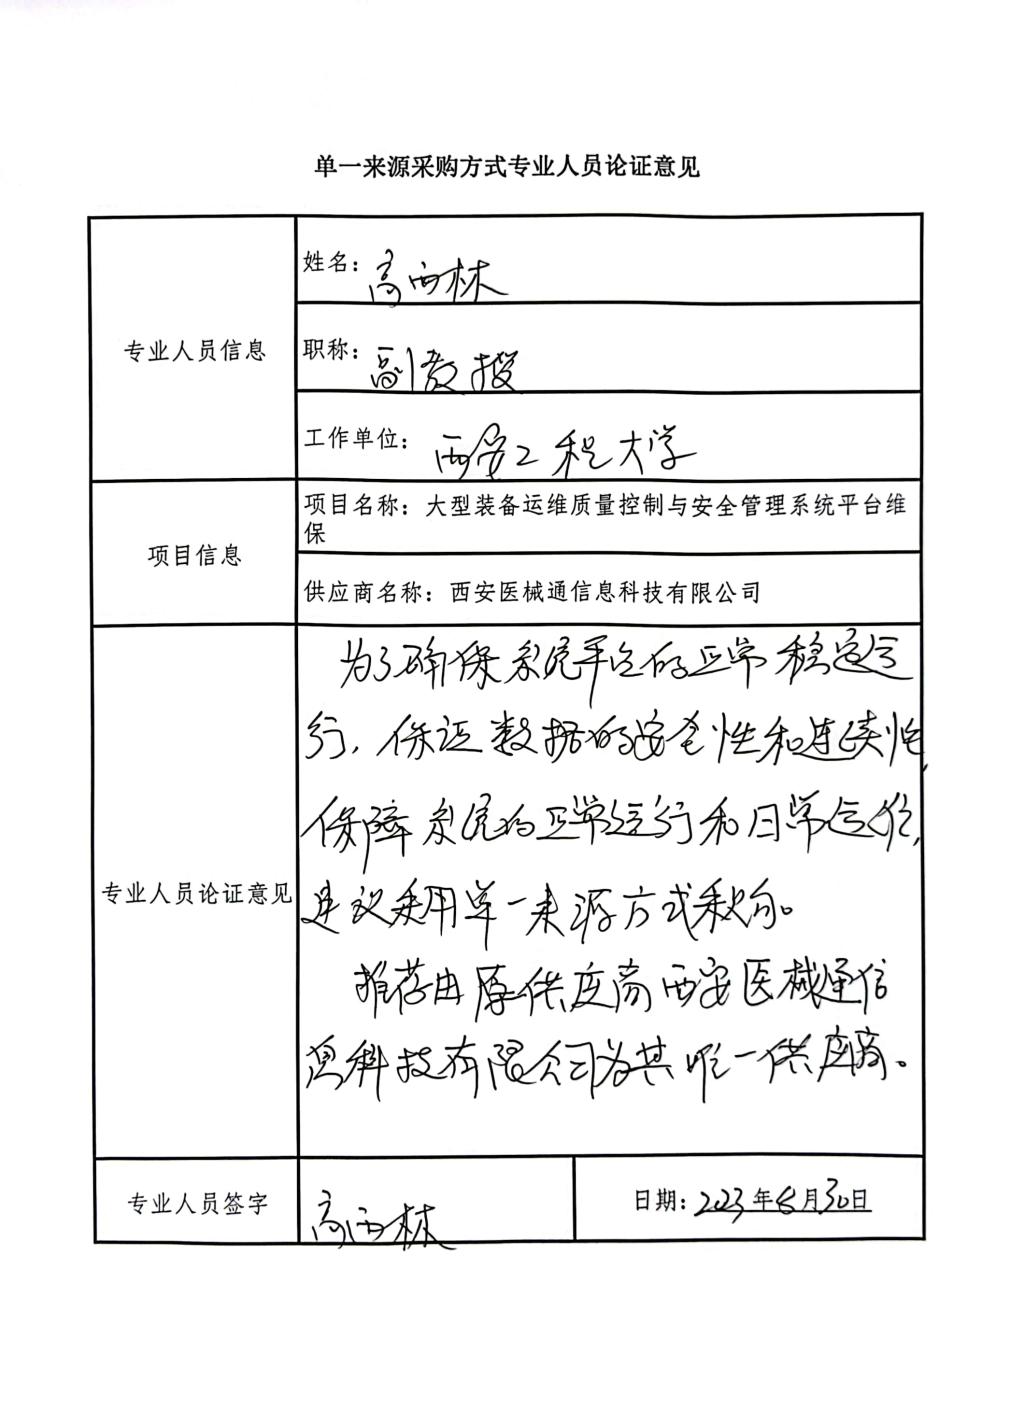 单一来源采购方式专业人员论证意见
专业人员信息
姓名：高西林
职称：副教授
工作单位：西安工程大学
项目信息
项目名称：大型装备运维质量控制与安全管理系统平台维
保
供应商名称：西安医械通信息科技有限公司
专业人员论证意见
为了确保系统平台的正常稳定运
行，保证数据的安全性和连续性，
保障系统的正常运行和日常运作，
建议采用单一来源方式采购。
推荐由原供应商西安医械通信
息科技有限公司为其唯一供应商。
专业人员签字
高西林
日期：2023年 月30日